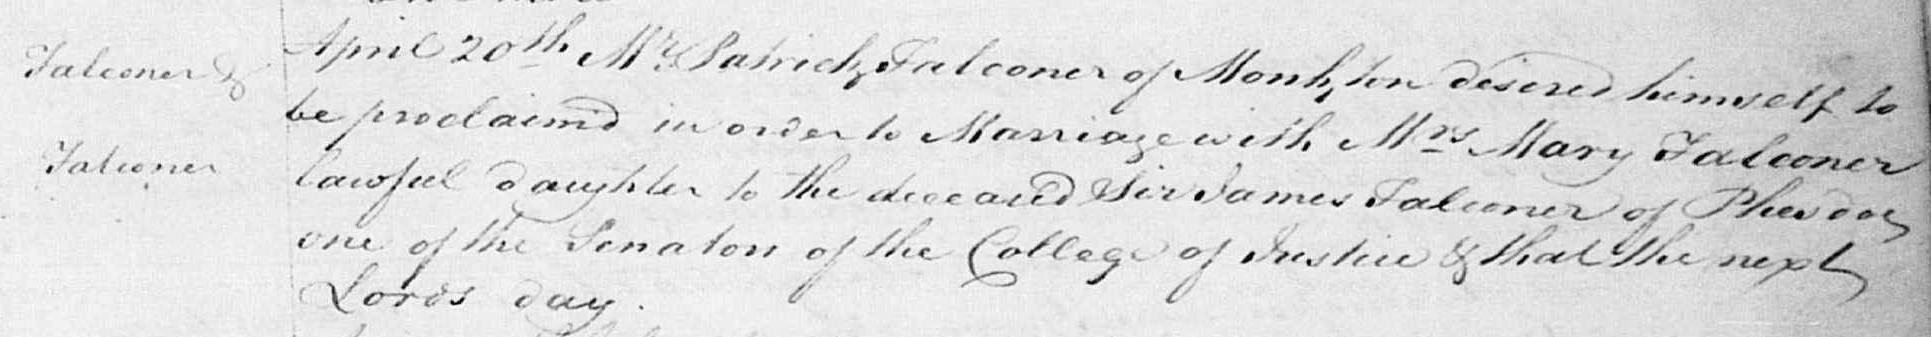 Falconer &
Falconer
April 20th Mr. Patrick Falconer of Monkton desered himself to
be proclaim'd in order to Marriage with Mrs Mary Falconer
lawful daughter to the deceas'd Sir James Falconer of Phesdoe
one of the Senators of the College of Justice & that the next
Lords day.